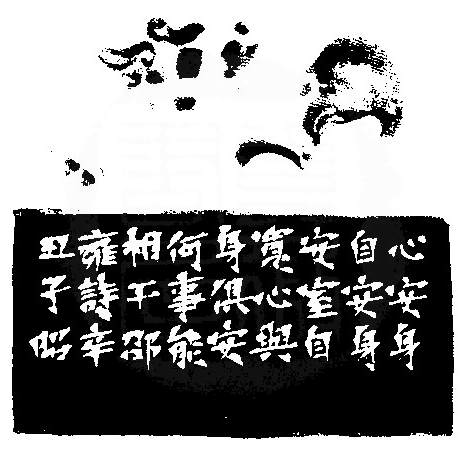 心安身
自安身
安室自
寬心與
身俱安
何事能
相干邵
雍詩辛
丑子昭